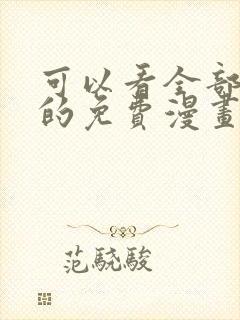 可以看全部
的免費漫畫
范驍駿